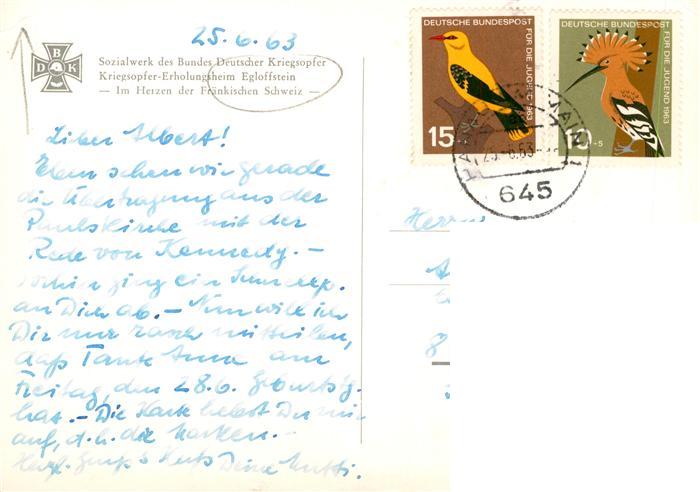 25.6.63
BDK
Sozialwerk des Bundes Deutscher Kriegsopfer
Kriegsopfer-Erholungsheim Egloffstein
— Im Herzen der Fränkischen Schweiz —
DEUTSCHE BUNDESPOST
FÜR DIE JUGEND 1963
15
DEUTSCHE BUNDESPOST
FÜR DIE JUGEND 1963
10+5
645
Lieber Albert!
Eben sehen wir gerade
die Übertragung aus der
Paulskirche mit der
Rede von Kennedy. –
ging ein
an Dich ab. – Nun will ich
Dir nur rasch mitteilen,
daß Tante Anna am
Freitag, den 28.6. Geburtstg.
hat. – Die Karte hebst Du mir
auf, d.h. die Marken. –
Herzl. Gruß & Kuß Deine Mutti.
Herrn
A
8